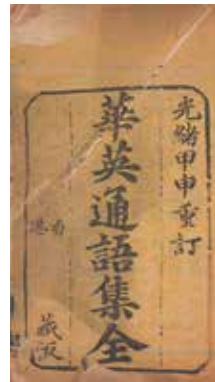 光緒甲申重訂
華英通語集全
香港
藏板